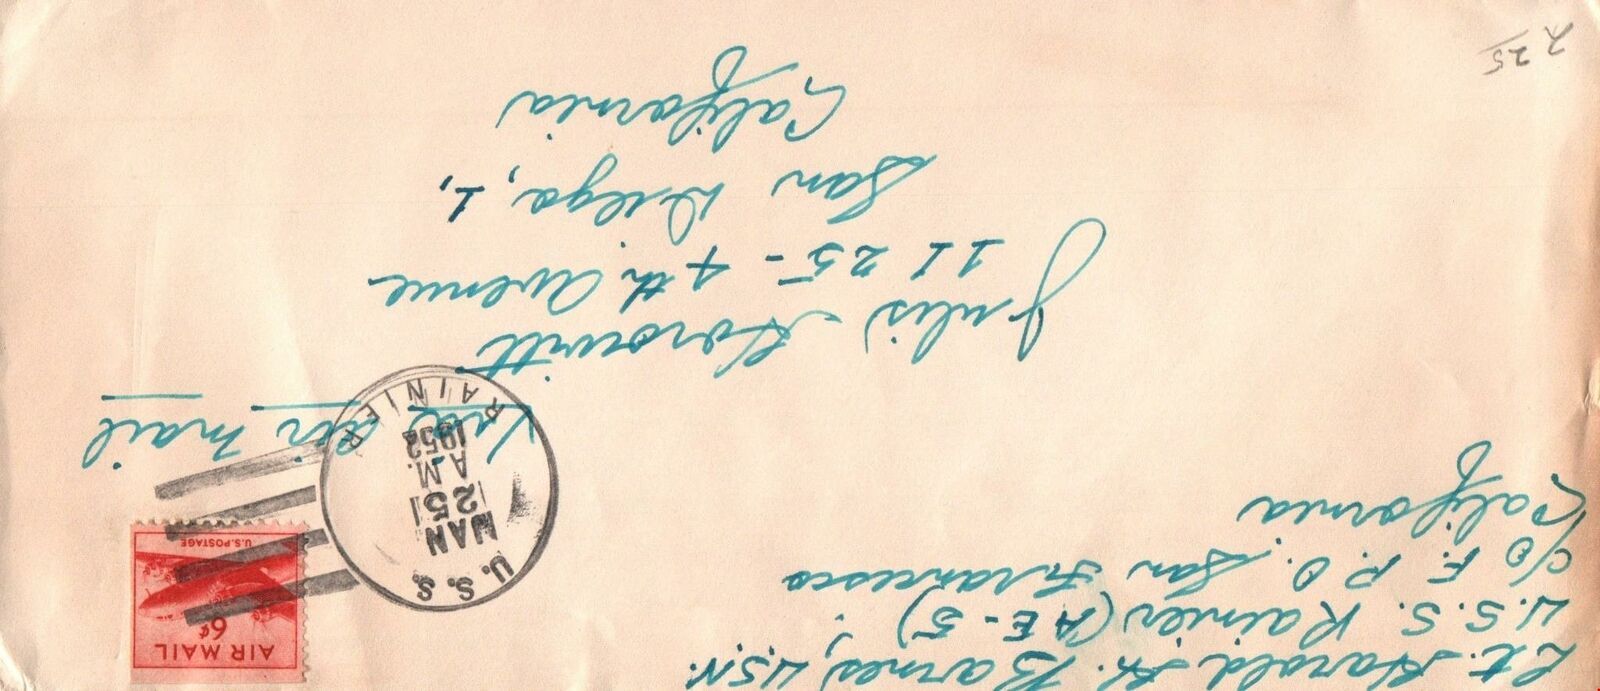 Lt. Harold H. Barnes, U.S.N.
U.S.S. Rainier (AE-5)
c/o F.P.O. San Francisco
California
AIR MAIL
6¢
U.S. POSTAGE
U.S.S.
RAINIER
JAN
25
A.M.
1952
Via Air Mail
Julis Horowitt
1125-4th Avenue
San Diego, 1,
California
2 25